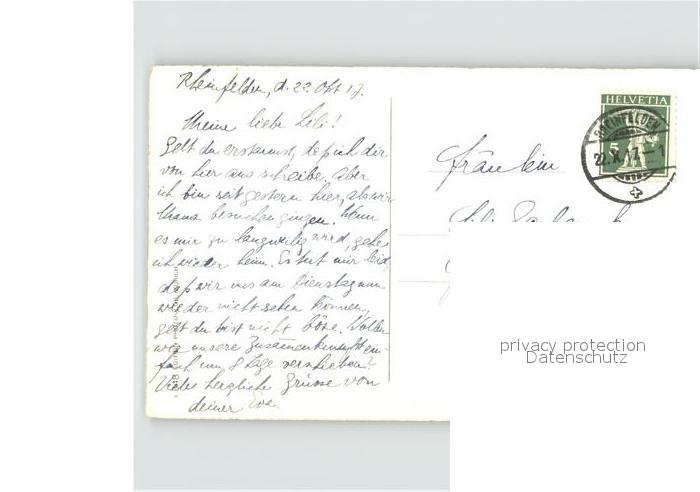 Rheinfelden, d. 22. Okt 17.
Meine liebe Lili!
Gelt du erstaunst, daß ich dir
von hier aus schreibe. Aber
ich bin seit gestern hier, als wir
Mama besuchen gingen. Wenn
es mir zu langweilig wird, gehe
ich wieder heim. Es tut mir leid,
daß wir uns am Dienstag nun
wieder nicht sehen können,
gelt du bist nicht böse. Wollen
wir unsere Zusammenkunft ein-
fach um 8 Tage verschieben?
Viele herzliche Grüsse von
deiner Eva.
HELVETIA
5
RHEINFELDEN
22.X.17
Fräulein
privacy protection
Datenschutz